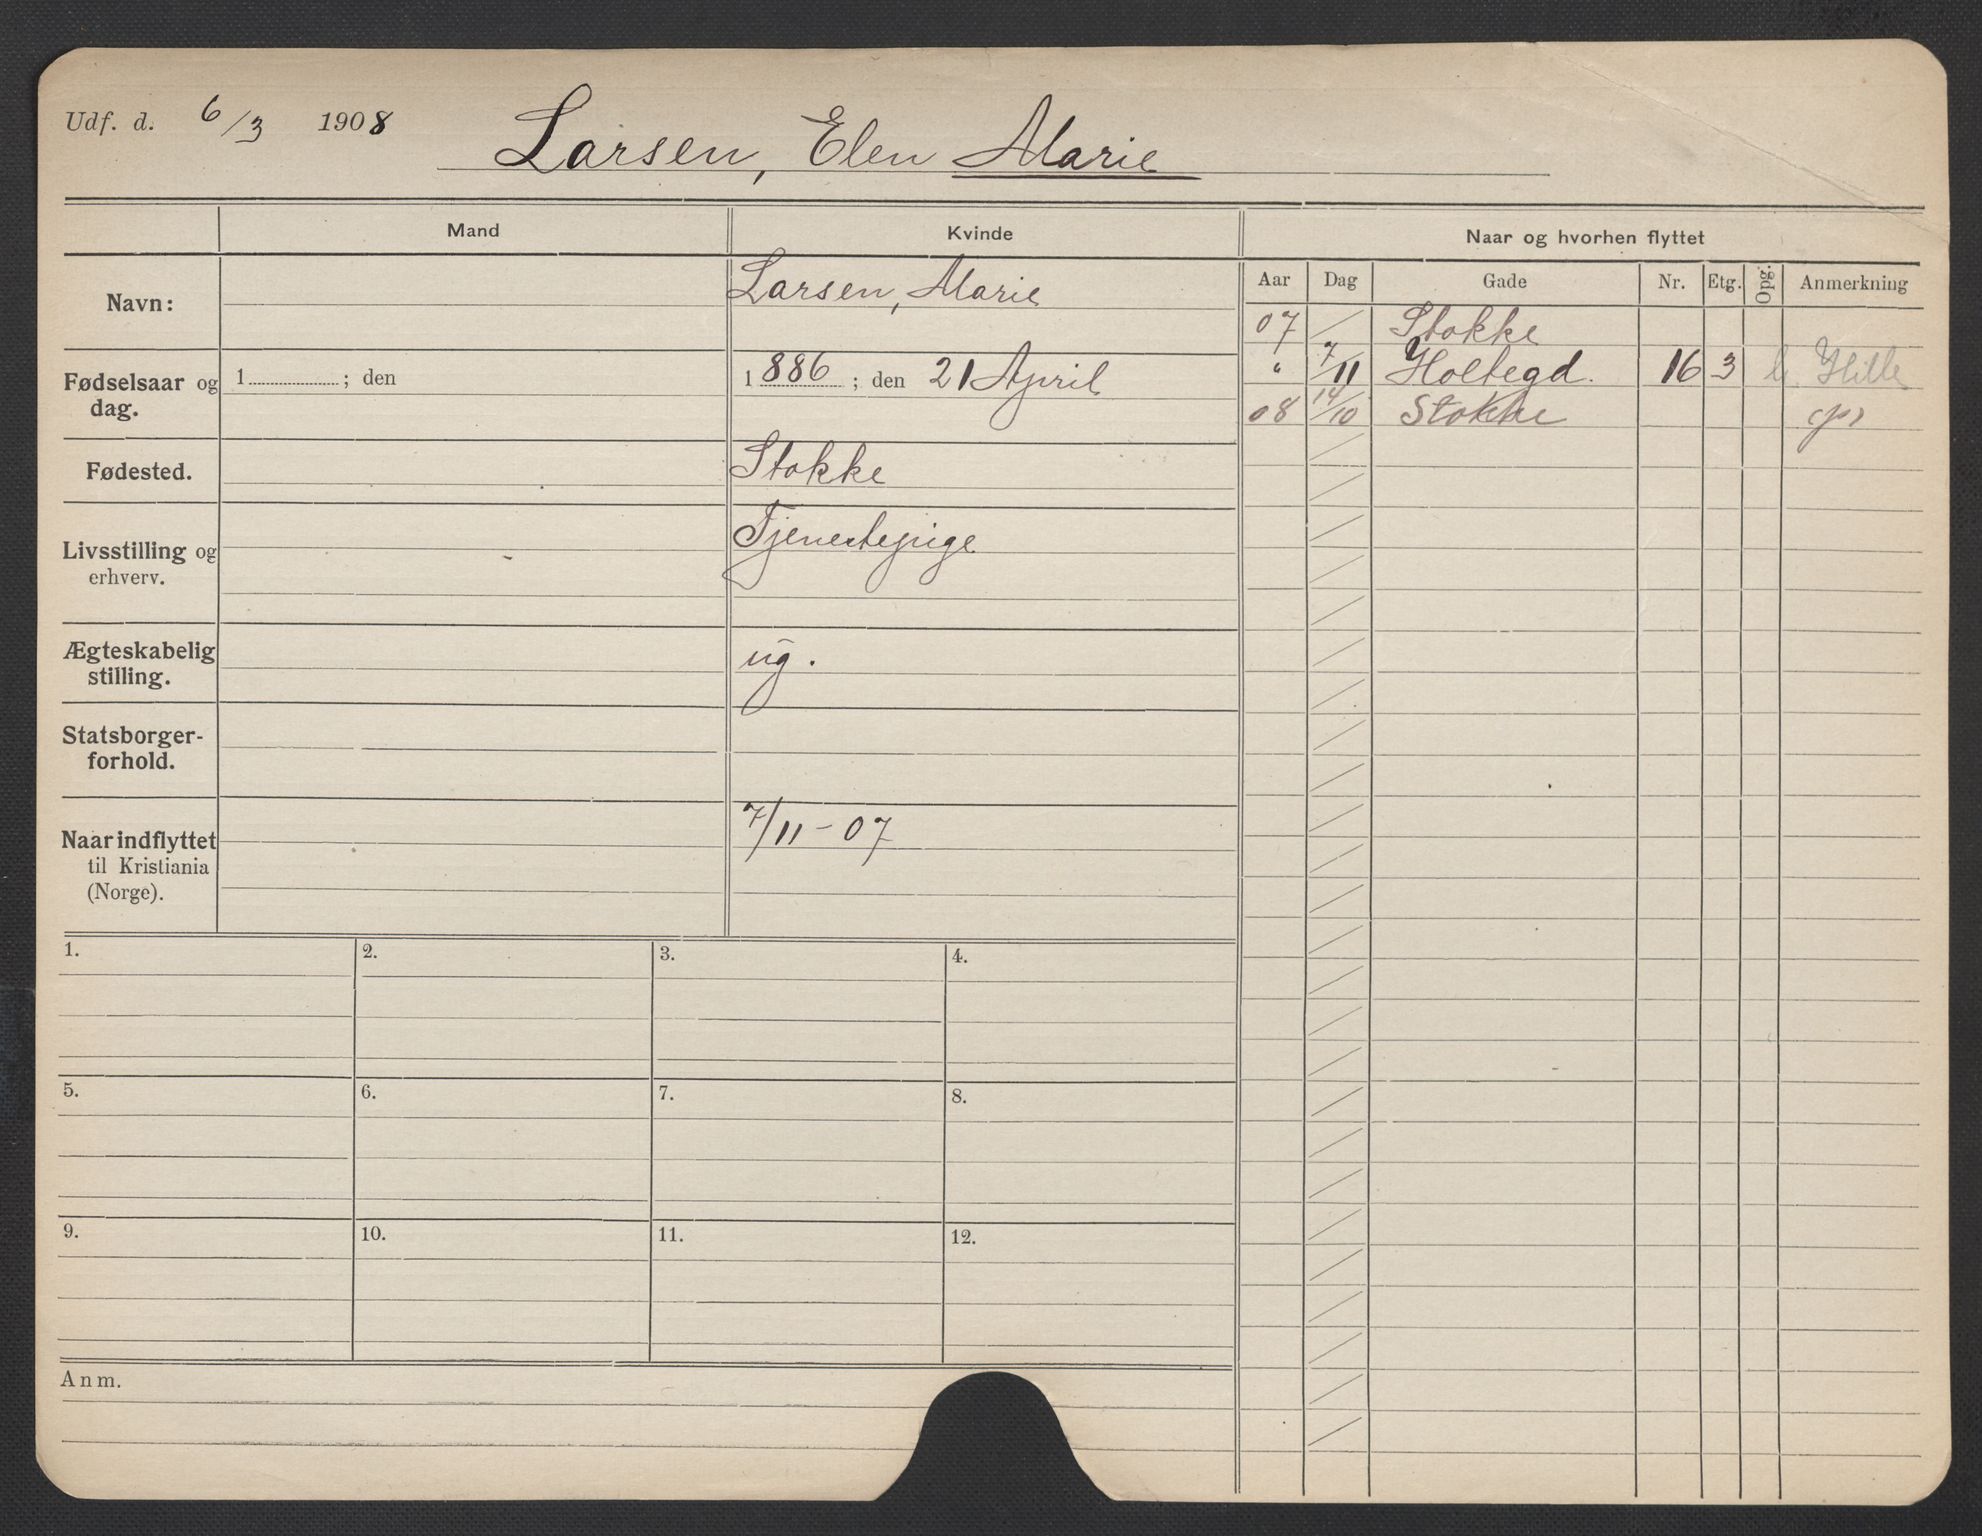 Udf. d. 6/3 1908 Larsen, Elen Marie
Mand
Kvinde
Naar og hvorhen flyttet
Navn:
Larsen, Marie
Fødselsaar og dag.
1 ; den
1886 ; den 21 April
Fødested.
Stokke
Livsstilling og erhverv.
Tjenestepige
Ægteskabelig stilling.
ug.
Statsborger-
forhold.
Naar indflyttet
til Kristiania
(Norge).
7/11 - 07
Aar Dag Gade Nr. Etg. Opg. Anmerkning
07 / Stokke
" 7/11 Holtegd. 16 3
08 14/10 Stokke
1. 2. 3. 4.
5. 6. 7. 8.
9. 10. 11. 12.
Anm.